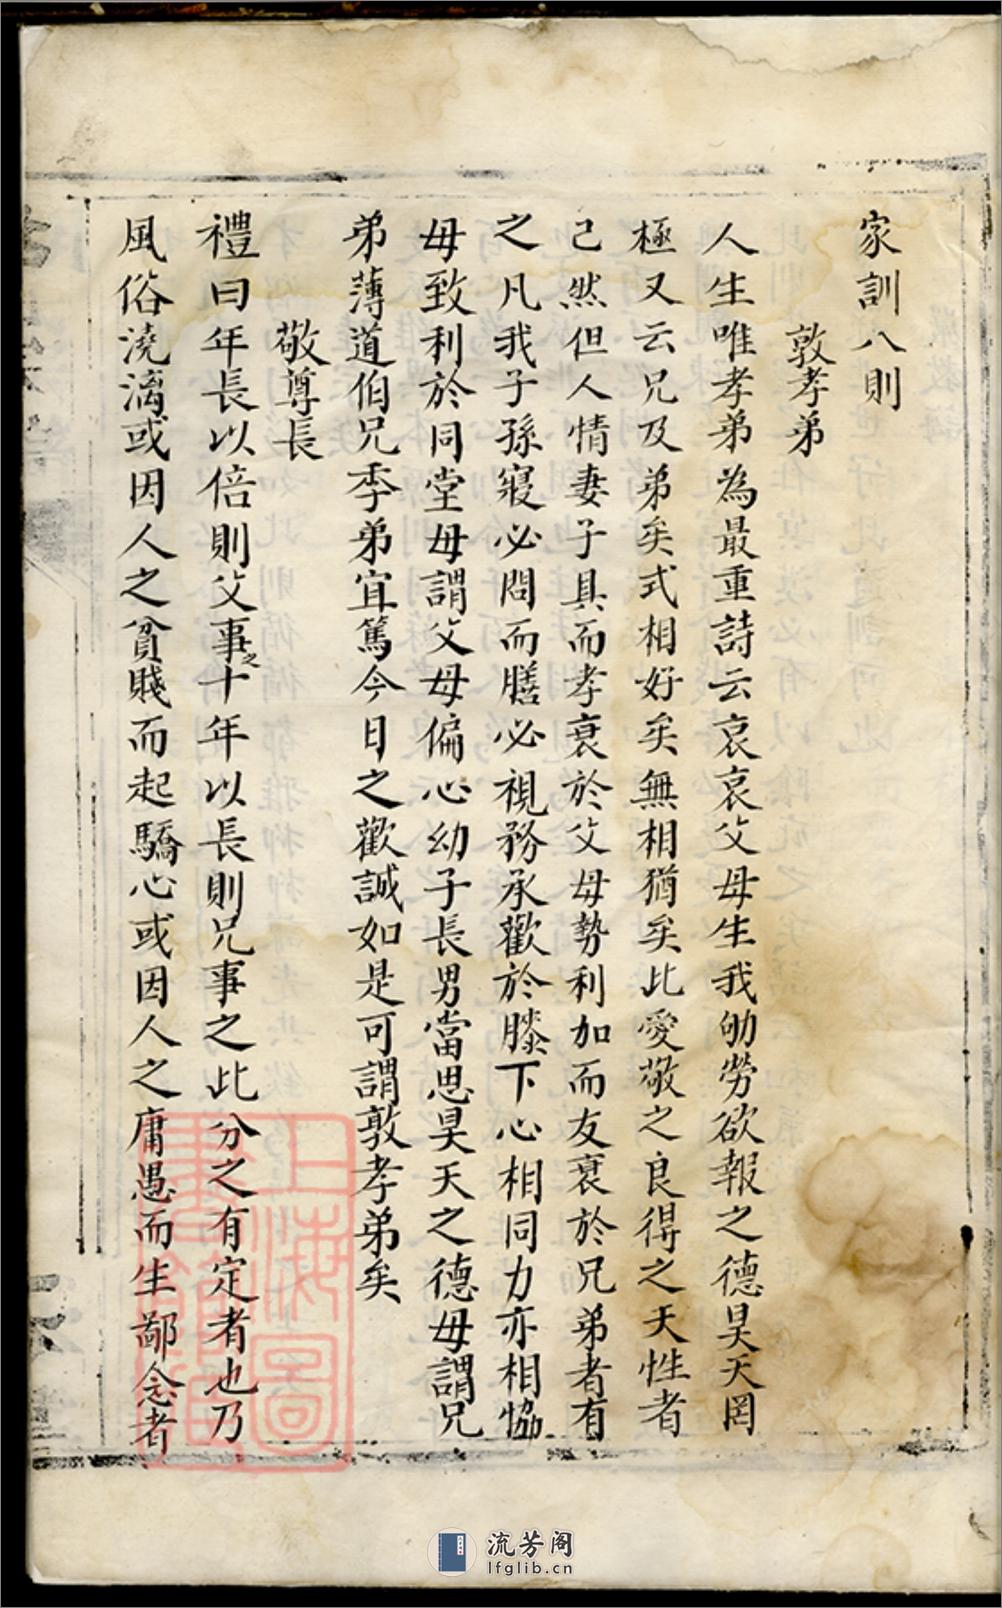 家訓八則
敦孝弟
人生唯孝弟為最重詩云哀哀父母生我劬勞欲報之德昊天罔
極又云兄及弟矣式相好矣無相猶矣比愛敬之良得之天性者
己然但人情妻子具而孝衰於父母勢利加而友衰於兄弟者有
之凡我子孫寢必問而膳必視務承歡於膝下心相同力亦相恊
毋致利於同堂毋謂父母偏心幼子長男當思昊天之德毋謂兄
弟薄道伯兄季弟宜篤今日之歡誠如是可謂敦孝弟矣
敬尊長
禮曰年長以倍則父事之十年以長則兄事之此分之有定者也乃
風俗澆漓或因人之貧賤而起驕心或因人之庸愚而生鄙念者
上海圖書館藏
流芳阁
lfglib.cn